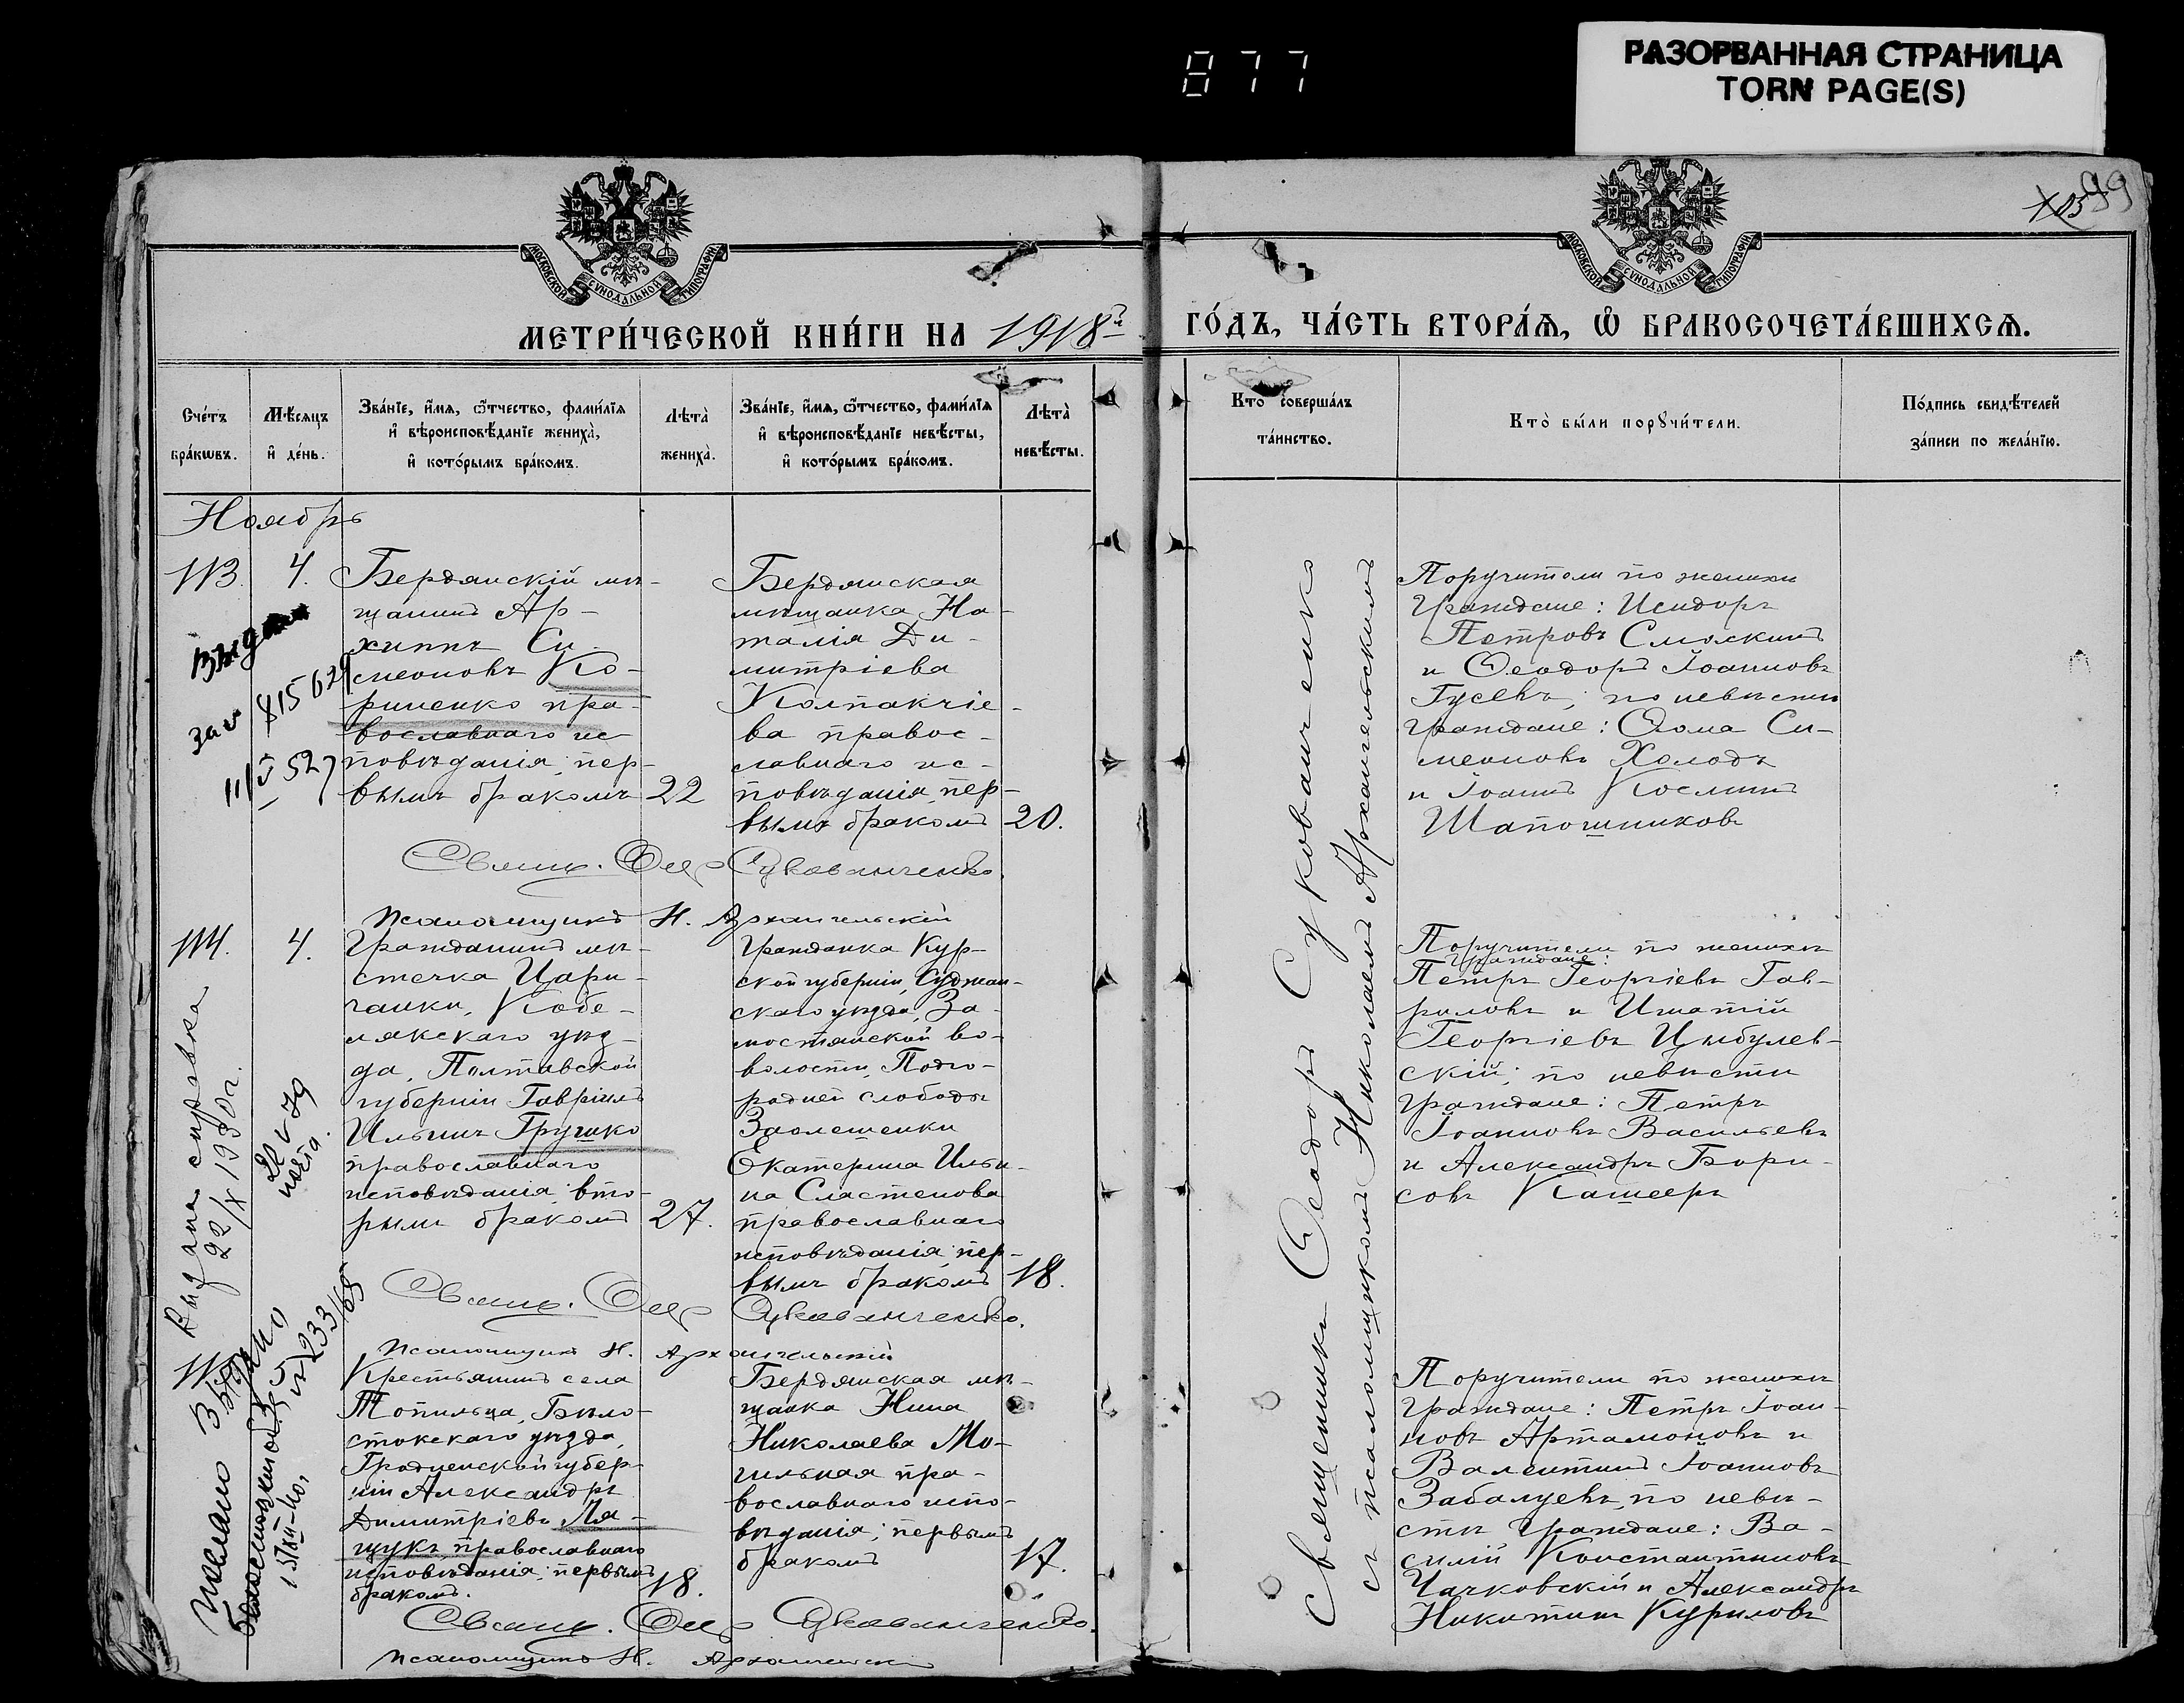 877
РАЗОРВАННАЯ СТРАНИЦА
TORN PAGE(S)
99
МОСКОВСКОЙ СѴНОДАЛЬНОЙ ТИПОГРАФІИ
МОСКОВСКОЙ СѴНОДАЛЬНОЙ ТИПОГРАФІИ
МЕТРИ́ЧЕСКОЙ КНИ́ГИ НА 1918й ГО́ДЪ, ЧА́СТЬ ВТОРА́Ѧ, Ѡ҆ БРАКОСОЧЕТА́ВШИХСѦ.
Счетъ бра́кѡвъ.
Мѣ́сѧцъ и҆ де́нь.
Зва́нїе, и҆́мѧ, ѻ҆́тчество, фами́лїѧ
и҆ вѣроисповѣ́данїе жениха̀,
и҆ кото́рымъ бра́комъ.
Лѣта̀ жениха̀.
Зва́нїе, и҆́мѧ, ѻ҆́тчество, фами́лїѧ
и҆ вѣроисповѣ́данїе невѣ́сты,
и҆ кото́рымъ бра́комъ.
Лѣта̀ невѣ́сты.
Кто̀ соверша́лъ та́инство.
Кто̀ бы́ли порꙋчи́тели.
По́дпись свидѣ́телей
за́писи по жела́нїю.
Ноябрь
113.
4.
Бердянскій мѣ-
щанинъ Ар-
хиппъ Си-
меоновъ Ко-
риненко пра-
вославнаго ис-
повѣданія, пер-
вымъ бракомъ
22
Бердянская
мѣщанка На-
талія Ди-
митріева
Колпакчіе-
ва правос-
лавнаго ис-
повѣданія, пер-
вымъ бракомъ
20.
Поручители по женихѣ
граждане: Исидоръ
Петровъ Смыскинъ
и Ѳеодоръ Іоанновъ
Гусевъ; по невѣстѣ
граждане: Ѳома Си-
меоновъ Холодъ
и Іоаннъ Косминъ
Шапошниковъ
выдана
815629
11/V 527
Свящ. Ѳеод Сукованченко.
Псаломщикъ Н. Архангельскій
114.
4.
Гражданинъ мѣ-
стечка Цари-
чанки, Кобе-
лякскаго уѣз-
да, Полтавской
губерніи Гавріилъ
Ильинъ Грушко
православнаго
исповѣданія; вто-
рымъ бракомъ
27.
Гражданка Кур-
ской губерніи, Суджан-
скаго уѣзда, За-
мостянской во-
волости, Подго-
родней слободы
Заолешенки
Екатерина Ильи-
на Сластенова
православнаго
исповѣданія; пер-
вымъ бракомъ
18.
Поручители по женихѣ
граждане:
Петръ Георгіевъ Гав-
риловъ и Игнатій
Георгіевъ Цыбулев-
скій; по невѣстѣ
граждане: Петръ
Іоанновъ Васильевъ
и Александръ Бори-
совъ Кашееръ
Выдана справка
22/X 1930г.
Свящ. Ѳеод Сукованченко.
Псаломщикъ Н. Архангельскій
115.
Крестьянинъ села
Топильца, Бѣло-
стокскаго уѣзда,
Гродненской губер-
ніи Александръ
Димитріевъ Ля-
щукъ православнаго
исповѣданія; первымъ
бракомъ.
18.
Бердянская мѣ-
щанка Нина
Николаева Мо-
гильная пра-
вославнаго испо-
вѣданія; первымъ
бракомъ
17.
Поручители по женихѣ
граждане: Петръ Іоан-
новъ Артамоновъ и
Валентинъ Іоанновъ
Забалуевъ, по невѣ-
стѣ граждане: Ва-
силій Константиновъ
Чачковскій и Александръ
Никитинъ Куриловъ
Свящ. Ѳеод Сукованченко.
Псаломщикъ Н. Архангельскій
Священникъ Ѳеодоръ Сукованченко
съ псаломщикомъ Николаемъ Архангельскимъ